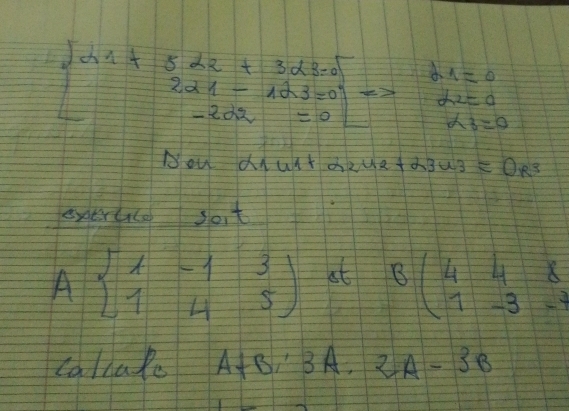 { α1 + 5α2 + 3α3=0 α1=0
2α1 - 1α3=0 => α2=0
-2α2 =0 α3=0
α1u1+ α2u2+α3u3 = 0R3
exercice soit
A [ 1 -1 3 ) et B ( 4 4 8
1 4 5 1 -3 -7
calcule A+B; 3A. 2A - 3B